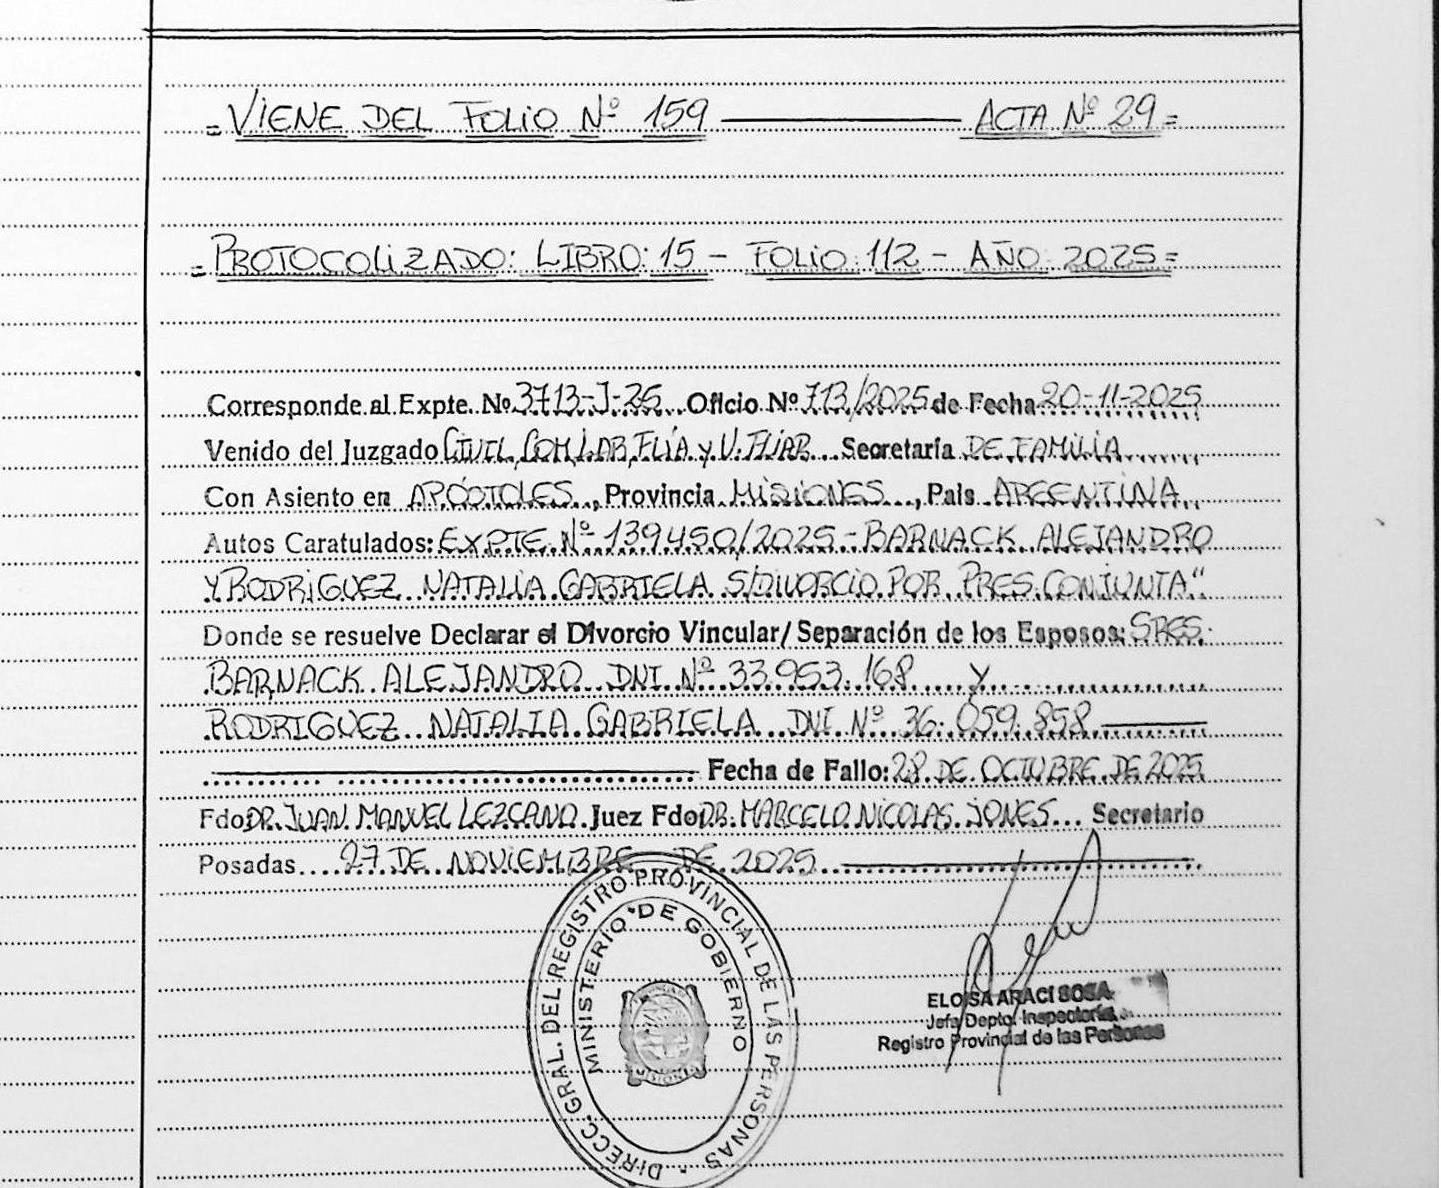 = VIENE DEL FOLIO Nº 159 ——— ACTA Nº 29 =
= PROTOCOLIZADO: LIBRO: 15 - FOLIO: 112 - AÑO: 2025 =
Corresponde al Expte. Nº 3713-J-25 Oficio Nº 713/2025 de Fecha 20-11-2025
Venido del Juzgado CIVIL, COM, LAB, FLIA y V. FLIAR... Secretaría DE FAMILIA
Con Asiento en APÓSTOLES, Provincia MISIONES, País ARGENTINA
Autos Caratulados: EXPTE. Nº 139450/2025 - BARNACK ALEJANDRO
Y RODRIGUEZ NATALIA GABRIELA S/DIVORCIO POR PRES. CONJUNTA"
Donde se resuelve Declarar el Divorcio Vincular/ Separación de los Esposos: SRES.
BARNACK ALEJANDRO DNI Nº 33.953.168 y
RODRIGUEZ NATALIA GABRIELA DNI Nº 36.059.858
Fecha de Fallo: 28 DE OCTUBRE DE 2025
Fdo DR. JUAN MANUEL LEZCANO. Juez Fdo DR. MARCELO NICOLAS JONES... Secretario
Posadas... 27 DE NOVIEMBRE DE 2025
DIRECC. GRAL. DEL REGISTRO PROVINCIAL DE LAS PERSONAS
MINISTERIO DE GOBIERNO
MISIONES
ELOISA ARACI SOSA
Jefa Depto. Inspectoría
Registro Provincial de las Personas